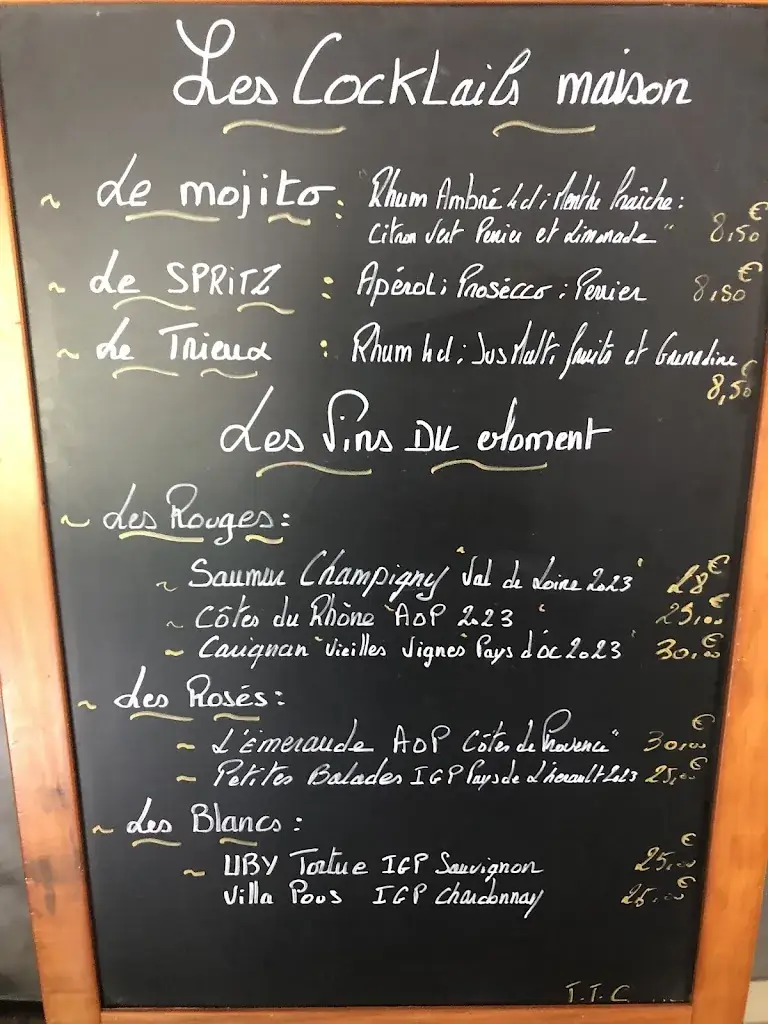 Les Cocktails maison
~ Le mojito : "Rhum Ambré 4cl ; Menthe fraîche ;
Citron Vert Perrier et Limonade" 8,50€
~ Le SPRITZ : Apérol ; Prosécco ; Perrier 8,50€
~ Le Trieux : Rhum 4cl ; Jus Multi fruits et Grenadine
8,50€
Les Vins DU Moment
~ Les Rouges :
~ Saumur Champigny "Val de Loire 2023" 28€
~ Côtes du Rhône "AOP 2023" 25,00€
~ Carignan "Vieilles Vignes" Pays d'oc 2023" 30,00€
~ Les Rosés :
~ L'Emeraude AOP Côtes de Provence" 30,00€
~ Petites Balades IGP Pays de L'hérault 2023 25,00€
~ Les Blancs :
~ UBY Tortue IGP Sauvignon 25,00€
Villa Pous IGP Chardonnay 25,00€
T.T.C